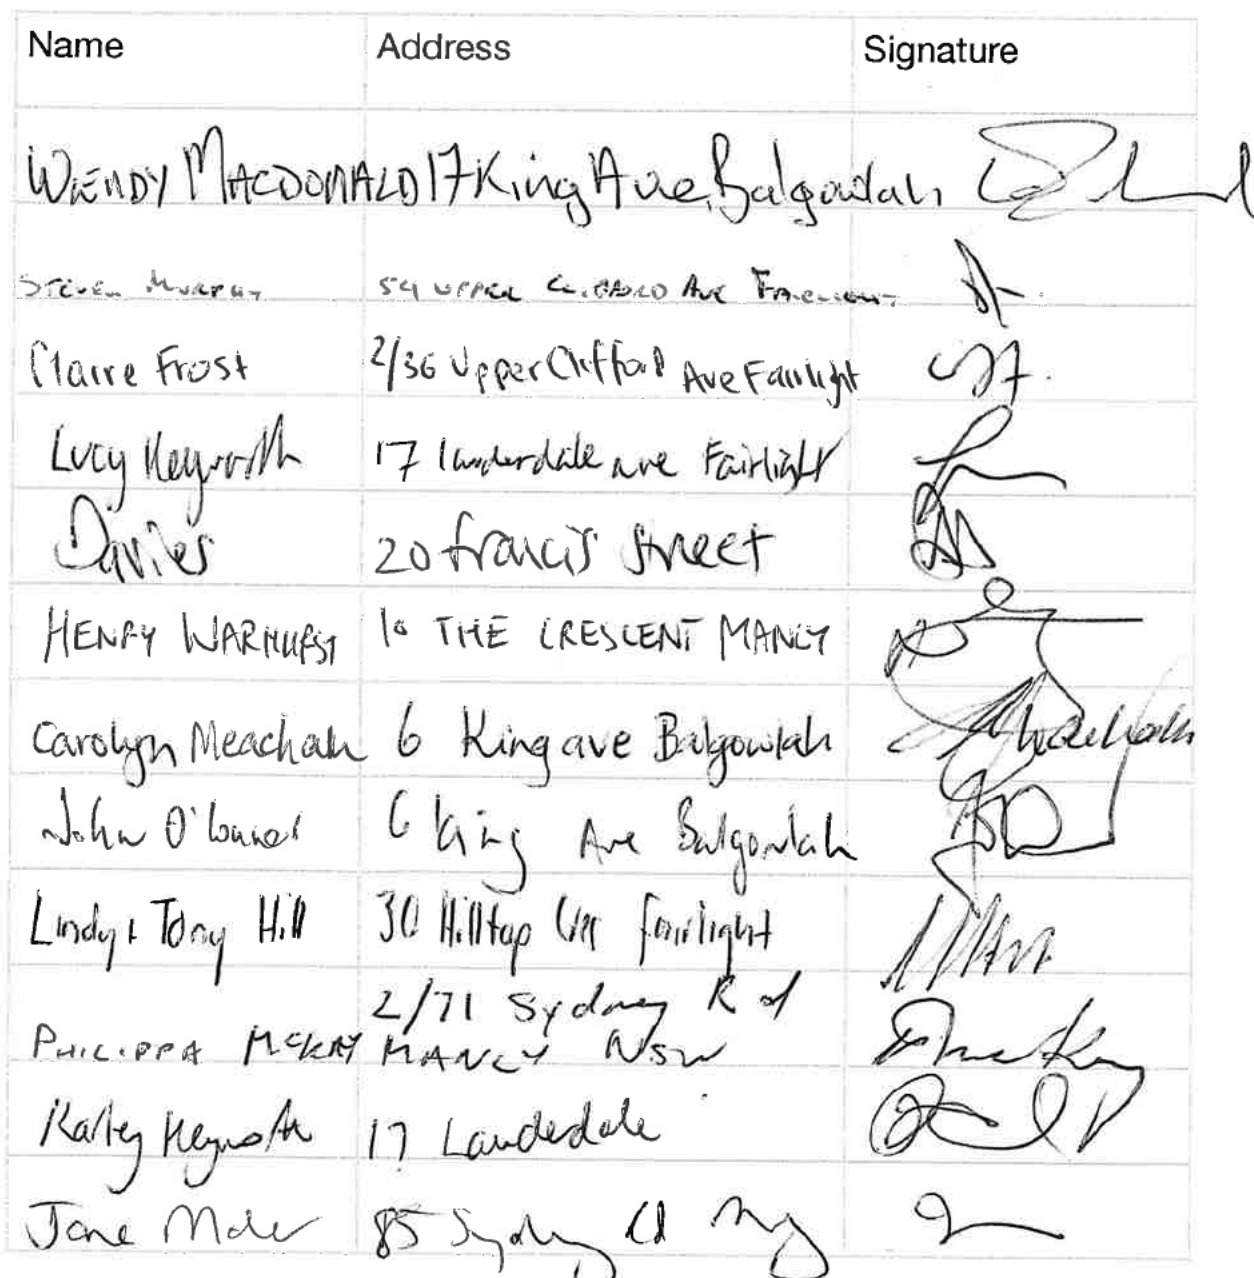 Name Address Signature
WENDY MACDONALD 17 King Ave, Balgowlah
STEVEN MURPHY 54 UPPER CLIFFORD AVE FAIRLIGHT
Claire Frost 2/36 Upper Clifford Ave Fairlight
Lucy Keyworth 17 lauderdale ave Fairlight
Davies 20 francis street
HENRY WARHURST 10 THE CRESCENT MANLY
Carolyn Meachah 6 King ave Balgowlah
John O'Connel 6 King Ave Balgowlah
Lindy + Tony Hill 30 Hilltop Cres Fairlight
2/71 Sydney Rd
PHILIPPA MCKAY MANLY NSW
Keyworth 17 Lauderdale
Jane 85 Sydney Rd